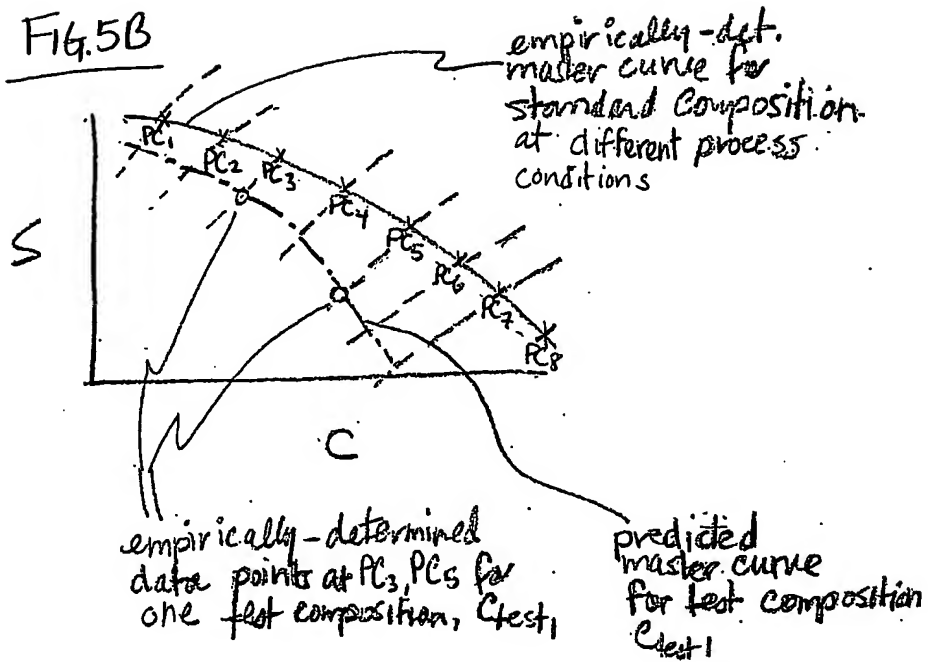 FIG.5B
empirically-det.
master curve for
standard composition
at different process
conditions
PC1
PC2
PC3
PC4
PC5
PC6
PC7
PC8
S
C
empirically-determined
data points at PC3, PC5 for
one test composition, Ctest1
predicted
master curve
for test composition
Ctest1